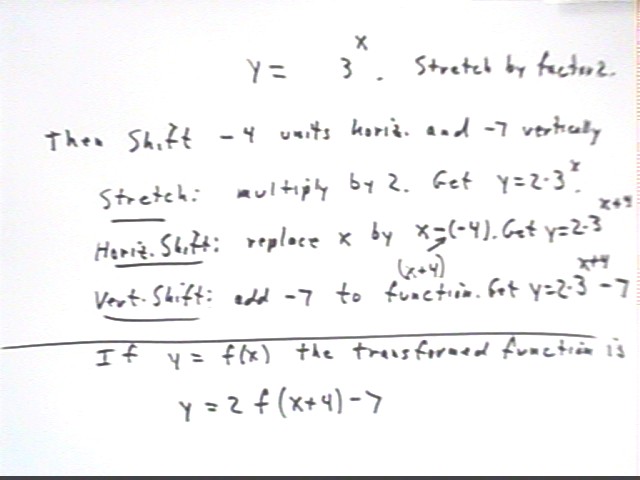 y = 3^x. Stretch by factor 2.
Then Shift -4 units horiz. and -7 vertically
Stretch: multiply by 2. Get y=2·3^x.
Horiz. Shift: replace x by x-(-4). Get y=2·3^x+4
(x+4)
Vert. Shift: add -7 to function. Get y=2·3^x+4 -7
If y = f(x) the transformed function is
y = 2 f(x+4)-7